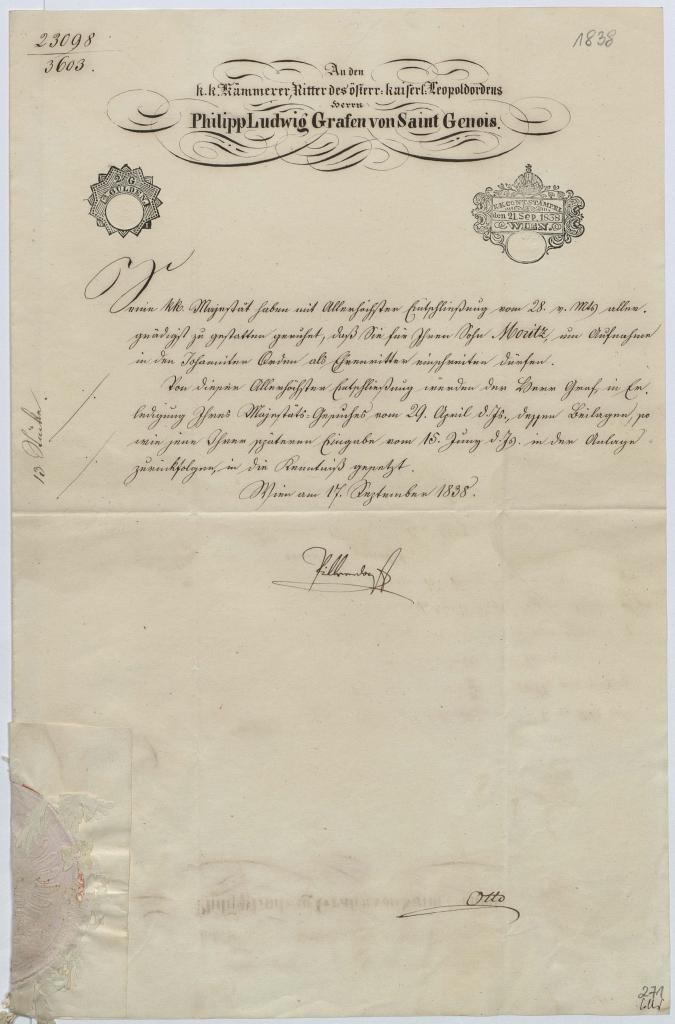 23098
3603.
1838
An den
k. k. Kämmerer, Ritter des österr: kaiserl: Leopoldordens
Herrn
Philipp Ludwig Grafen von Saint Genois.
2 G
GULDEN
K.K. CONT. STÄMPEL
den 21 Sep. 1838
WIEN.
Seine kk. Majestät haben mit Allerhöchster Entschließung vom 28. v. Mts aller-
gnädigst zu gestatten geruhet, daß Sie für Ihren Sohn Moritz, um Aufnahme
in den Johanniter Orden als Ehrenritter einschreiten dürfen.
Von dieser Allerhöchster Entschließung werden der Herr Graf, in Er-
ledigung Ihres Majestäts-Gesuches vom 29. April d. Js., dessen Beilagen, so
wie jene Ihrer späteren Eingabe vom 15. Juny d. Js. in der Anlage
zurückfolgen, in die Kenntniß gesetzt.
13 Stücke.
Wien am 17. September 1838.
Pillersdorff
Otto
271